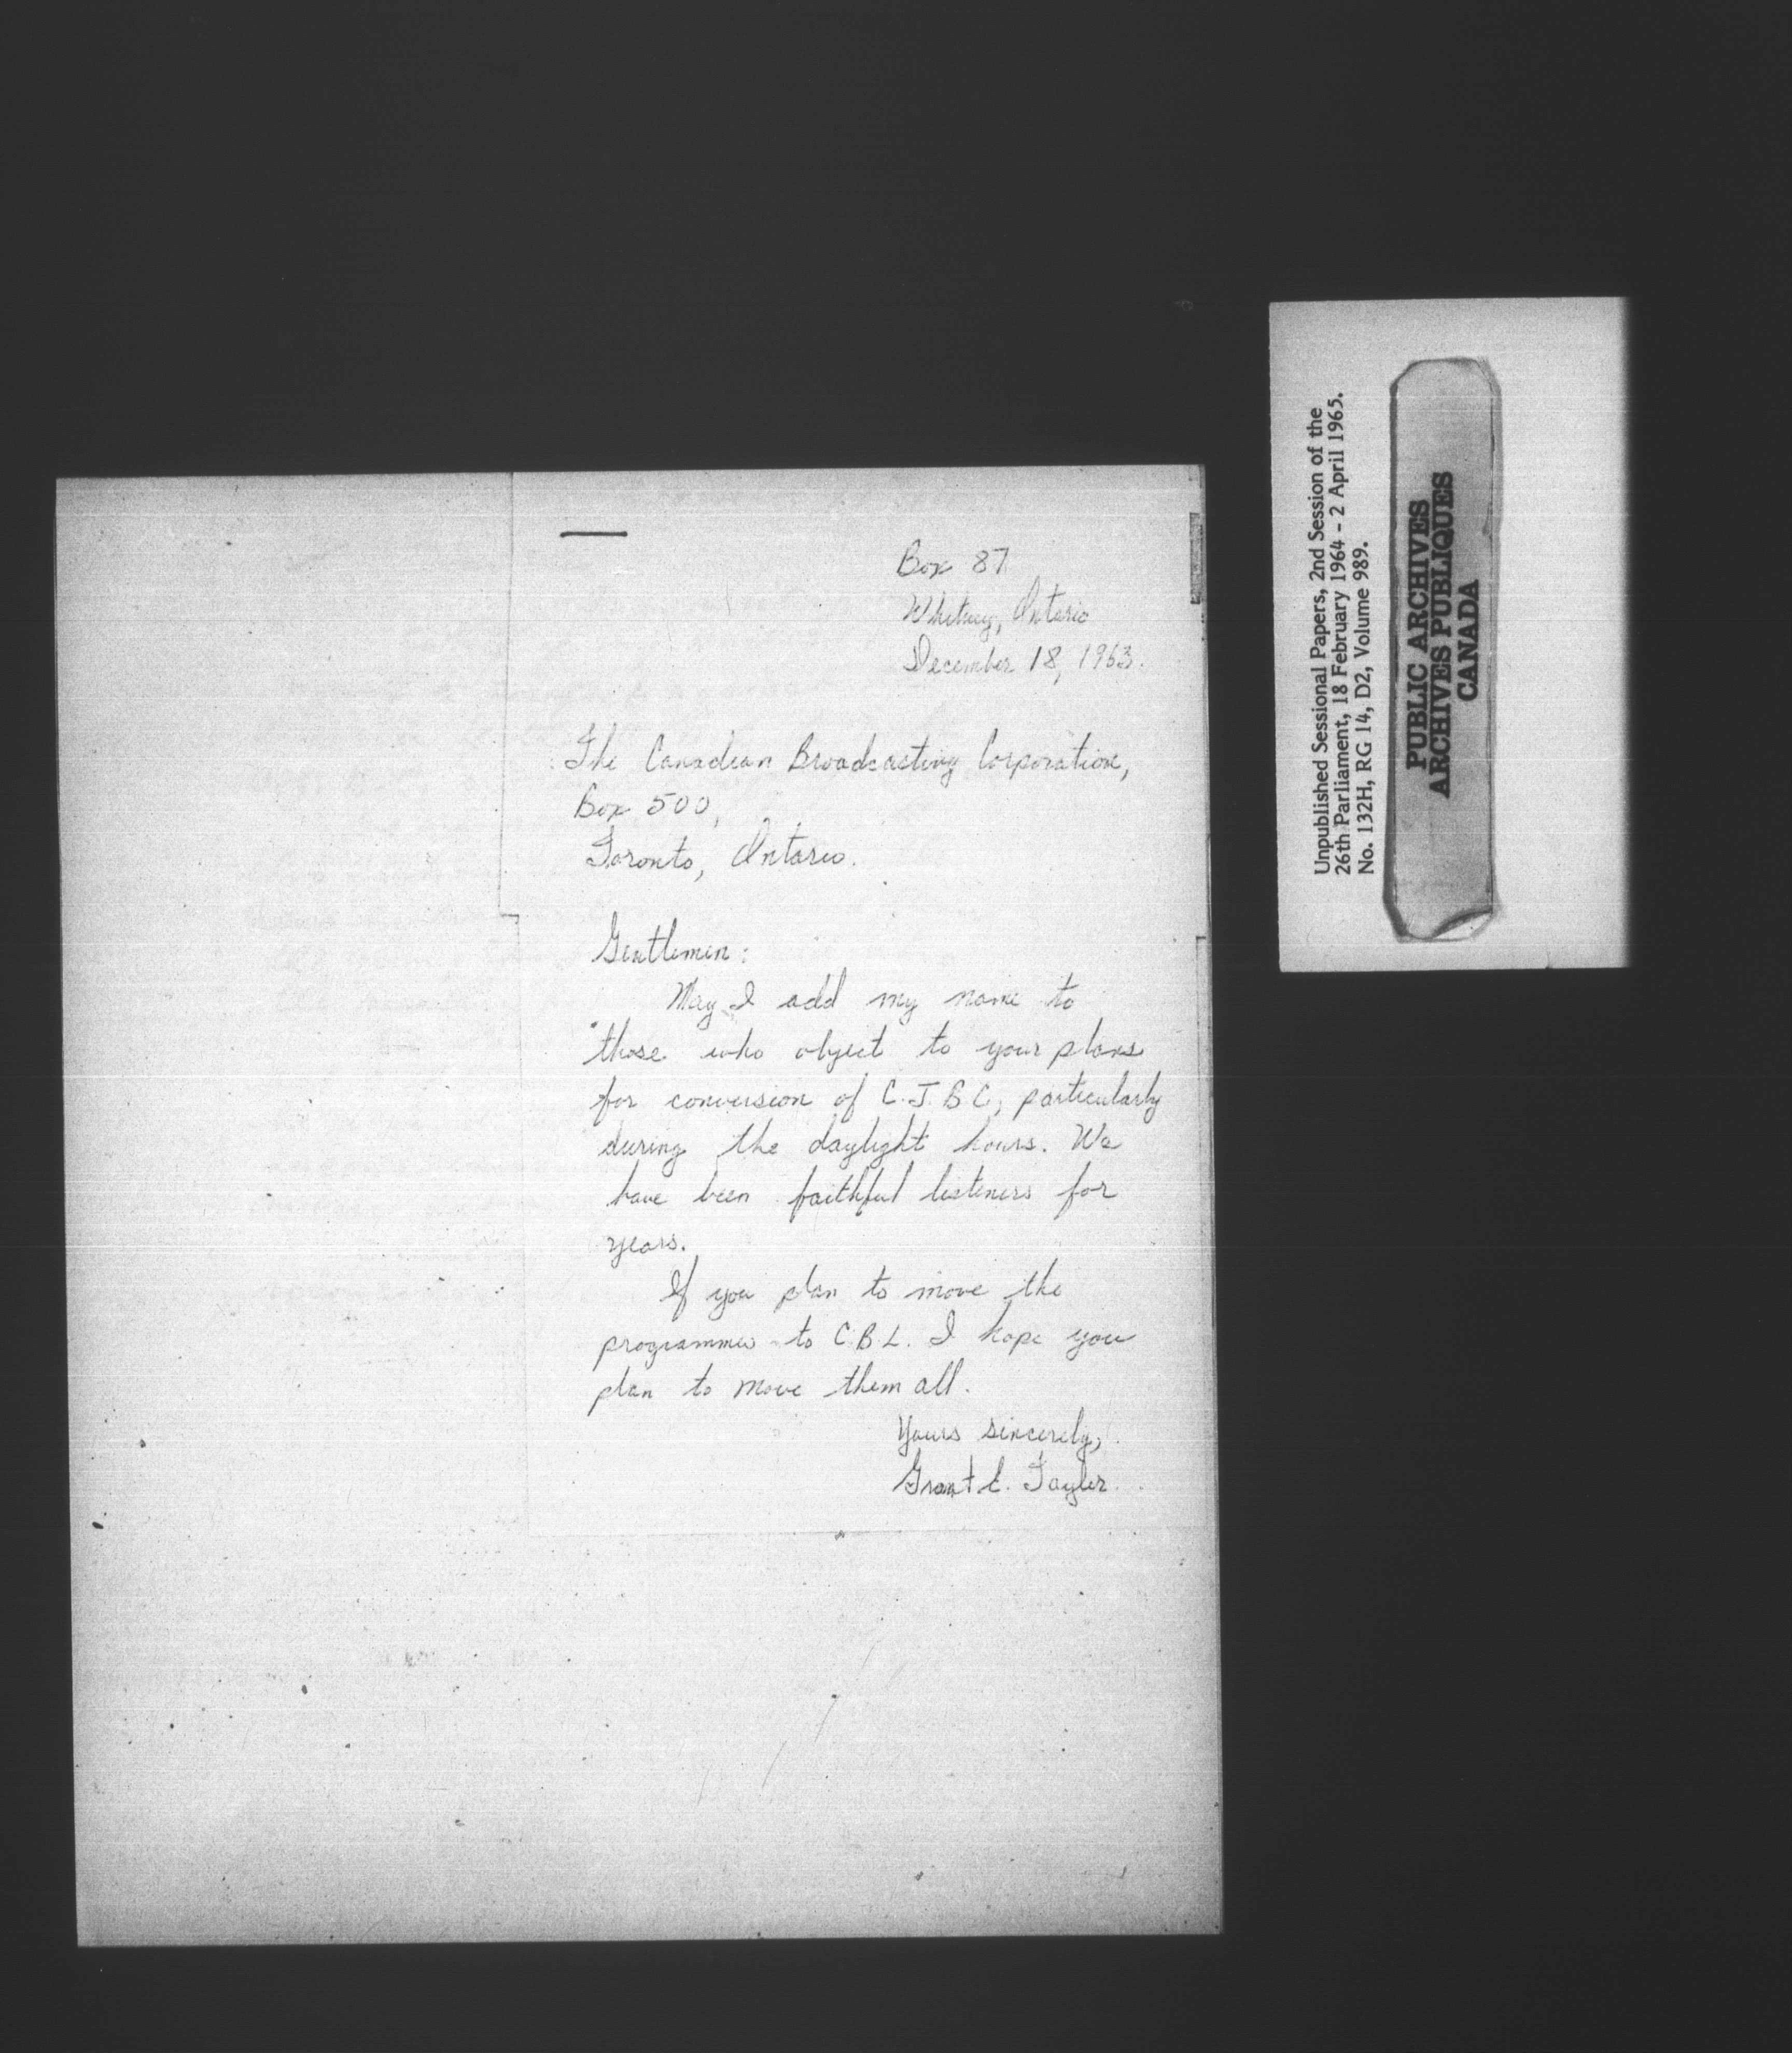 Box 87
Whitney, Ontario
December 18, 1963.
The Canadian Broadcasting Corporation,
Box 500,
Toronto, Ontario.
Gentlemen:
May I add my name to
those who object to your plans
for conversion of C.J.B.C, particularly
during the daylight hours. We
have been faithful listeners for
years.
If you plan to move the
programmes to C.B.L. I hope you
plan to move them all.
Yours sincerely,
Grant E. Tayler.
Unpublished Sessional Papers, 2nd Session of the
26th Parliament, 18 February 1964 - 2 April 1965.
No. 132H, RG 14, D2, Volume 989.
PUBLIC ARCHIVES
ARCHIVES PUBLIQUES
CANADA